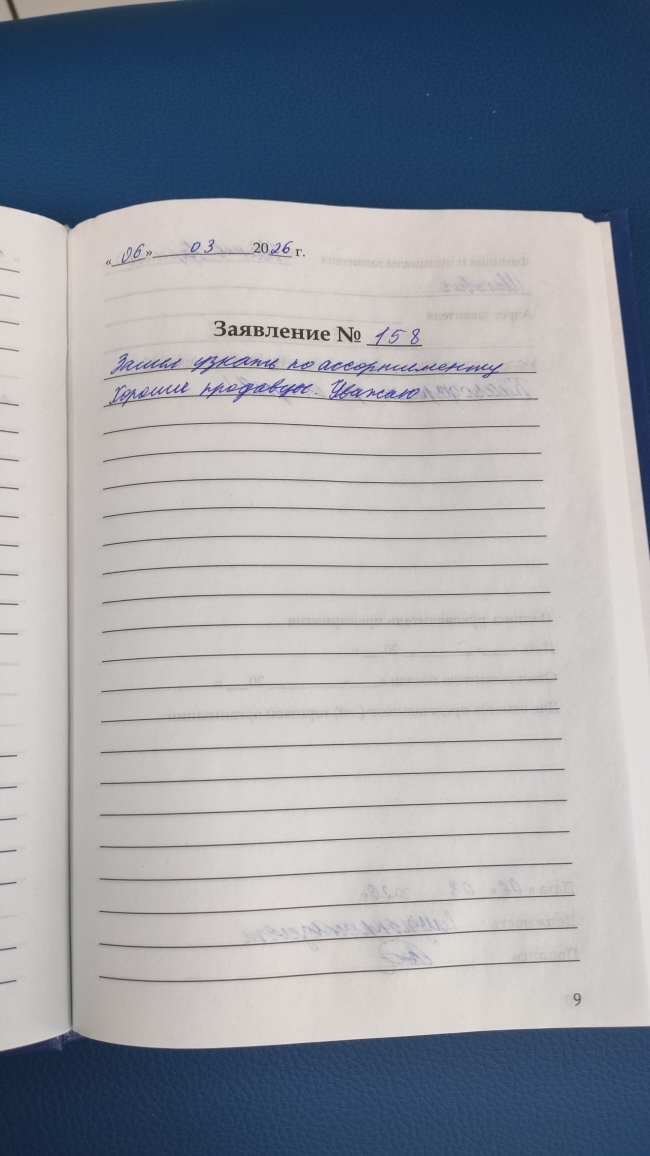 « 06 » 03 2026 г.
Заявление № 158
Зашел узнать по ассортименту
Хорошие продавцы. Уважаю
9